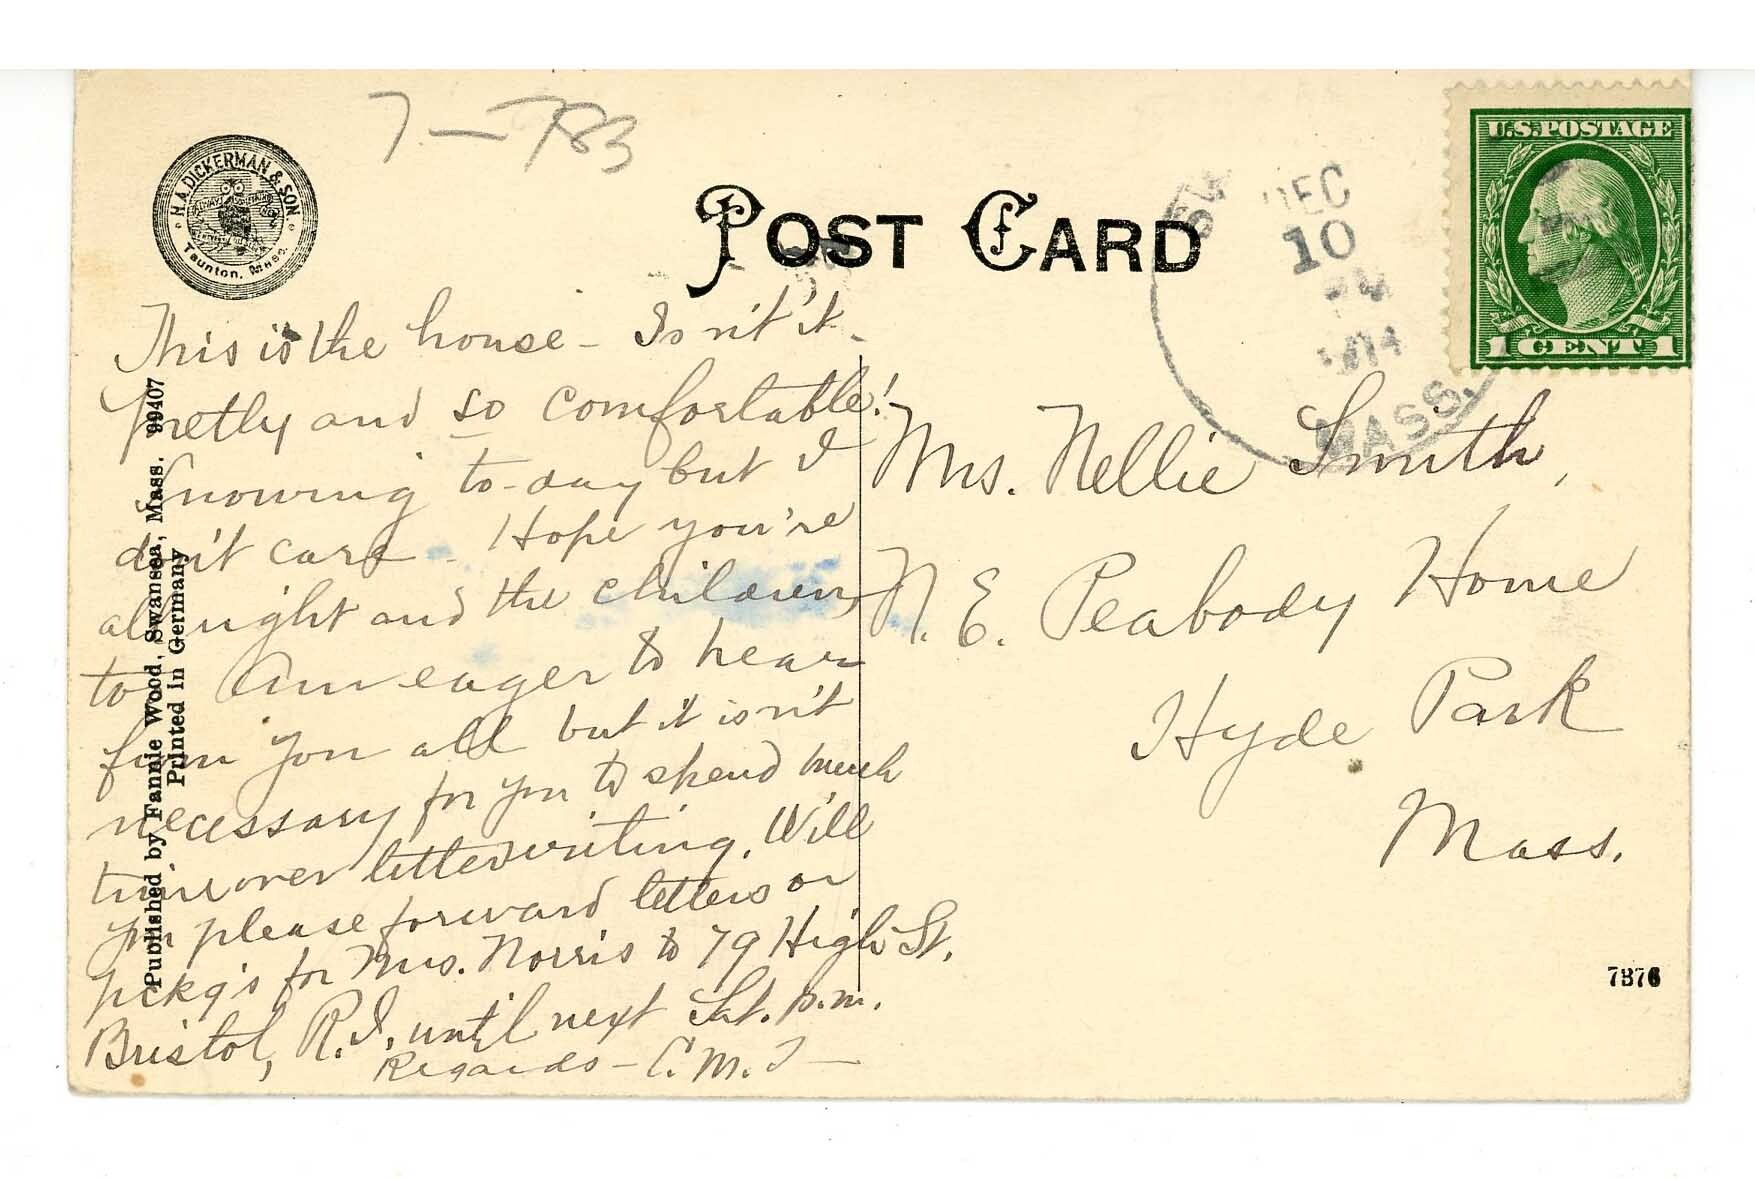 7-783
H.A. DICKERMAN & SON.
Taunton, Mass.
POST CARD
DEC
10
1914
MASS.
U.S. POSTAGE
1 CENT 1
This is the house - Isn't it
pretty and so comfortable!
Snowing to-day but I
don't care - Hope you're
all right and the children
too Am eager to hear
from you all but it isn't
necessary for you to spend much
time over letter writing. Will
you please forward letters or
pckg's for Mrs. Norris to 79 High St.
Bristol, R.I. until next Sat. p.m.
Regards - C.M.T -
Mrs. Nellie Smith,
N. E. Peabody Home
Hyde Park
Mass.
Published by Fannie Wood, Swansea, Mass. 99407
Printed In Germany
7876